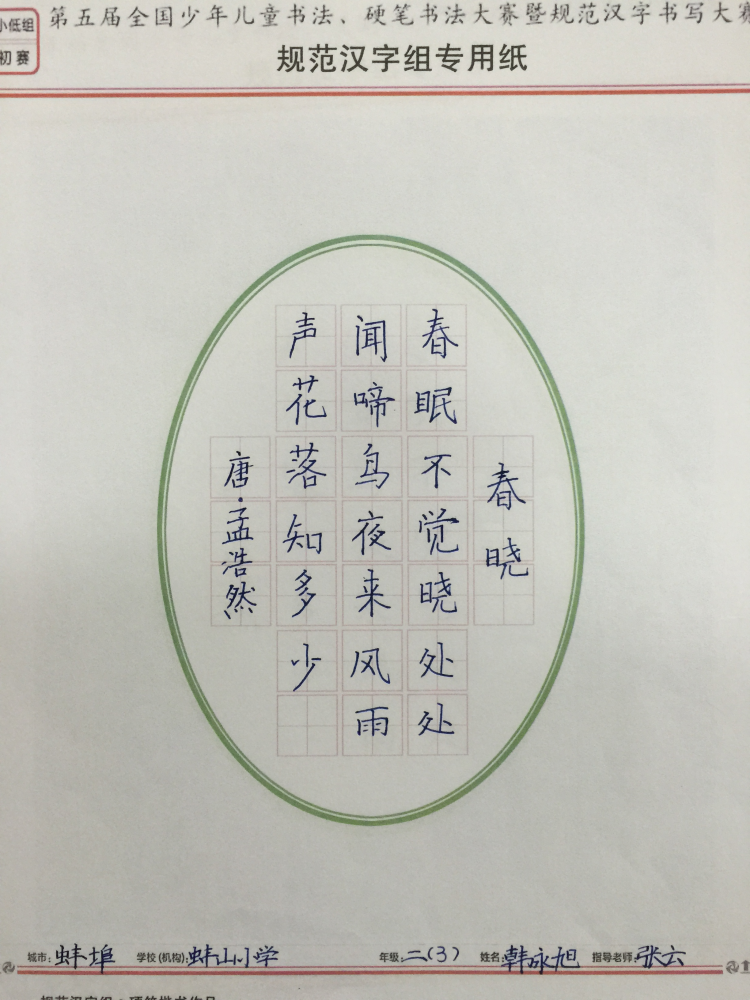 小低组
初赛
第五届全国少年儿童书法、硬笔书法大赛暨规范汉字书写大赛
规范汉字组专用纸
春晓
春眠不觉晓处处
闻啼鸟夜来风雨
声花落知多少
唐·孟浩然
城市:蚌埠 学校(机构):蚌山小学 年级:二(3) 姓名:韩咏旭 指导老师:张云